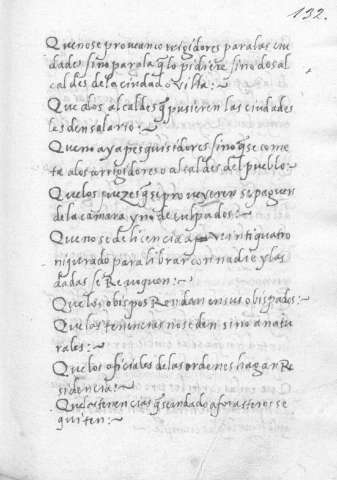 132.
Que no se provean corregidores para las ciu
dades sino para la q̃ lo pidiere / sino dos al
caldes de la ciudad o villa :~
Que dos alcaldes q̃ pusieren las ciudades
les den salario :~
Que no aya pesquisidores / sino que se come
ta a los corregidores o alcaldes del pueblo :~
Que los juezes q̃ se proveyeren se paguen
de la camara y no de culpados :~
Que no se de licencia a veintiquatro
ni jurado para librar con nadie y las
dadas se Revoquen :~
Que los obispos Residan en sus obispados :~
Que las tenencias no se den sino a natu
rales :~
Que los oficiales de las ordenes hagan Re
sidencia :~
Que las tenencias q̃ se an dado a forasteros se
quiten :~